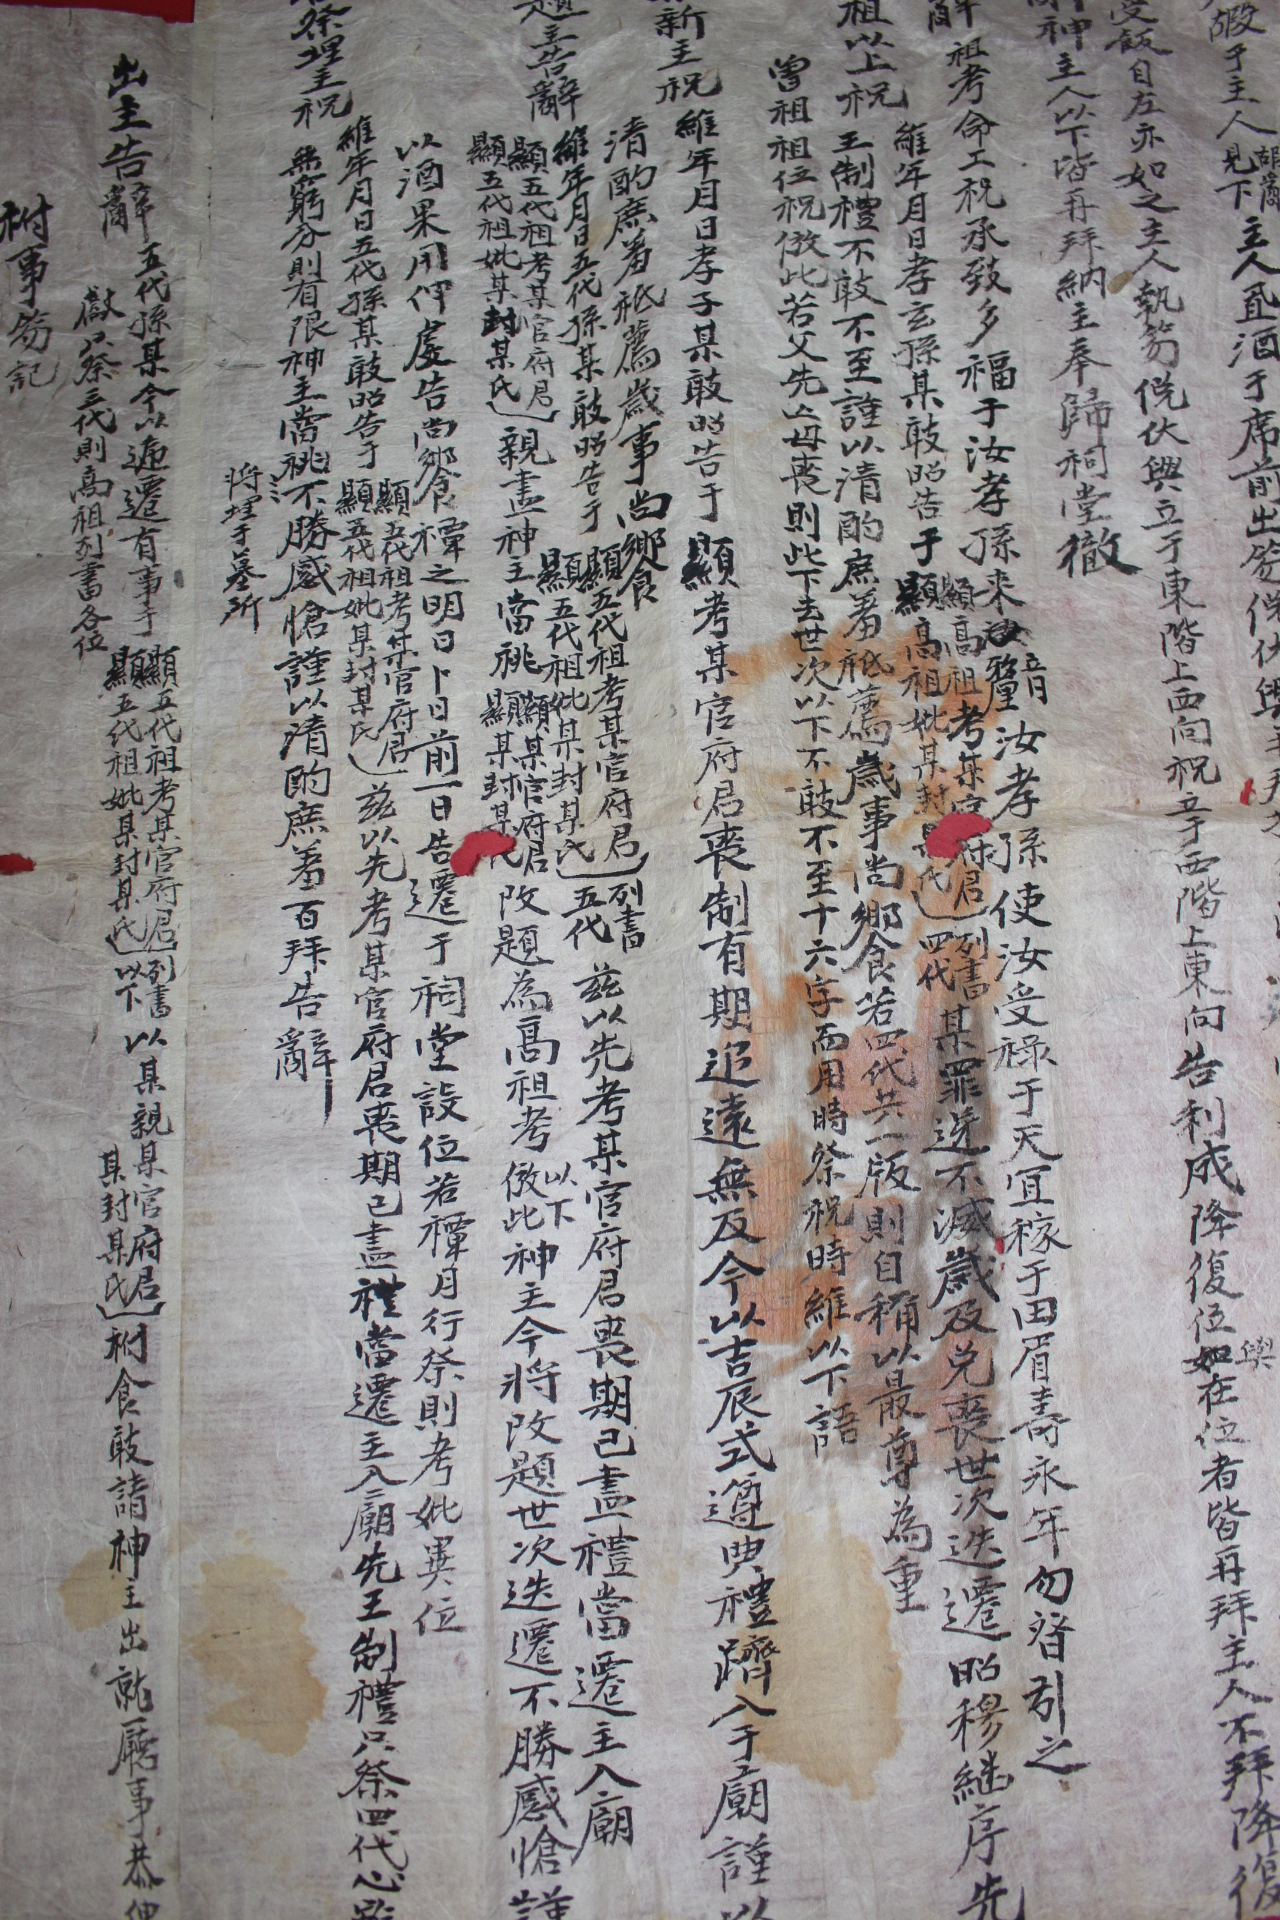 嘏于主人
嘏辭見下
主人酒于席前出笏俛伏興
受飯自左亦如之主人執笏俛伏興立于東階上西向祝立于西階上東向告利成降復位
與
在位者皆再拜主人不拜降復
神主人以下皆再拜納主奉歸祠堂徹
祖考命工祝承致多福于汝孝孫來汝
音釐
汝孝孫使汝受祿于天宜稼于田眉壽永年勿替引之
維年月日孝玄孫某敢昭告于
顯高祖考某官府君
顯高祖妣某封某氏
列書四代
某罪逆不滅歲及免喪世次迭遷昭穆繼序先
祖以上祝
王制禮不敢不至謹以清酌庶羞祗薦歲事尚饗若四代共一版則自稱以最尊為重
曾祖祖位祝倣此若父先亡母喪則此下去世次以下不敢不至十六字而用時祭祝時維以下語
新主祝
維年月日孝子某敢昭告于
顯考某官府君喪制有期追遠無及今以吉辰式遵典禮躋入于廟謹以
清酌庶羞祗薦歲事尚饗
題主告辭
維年月日五代孫某敢昭告于
顯五代祖考某官府君
顯五代祖妣某封某氏
列書五代
茲以先考某官府君喪期已盡禮當遷主入廟
顯五代祖考某官府君
顯五代祖妣某封某氏
親盡神主當祧
顯某官府君
顯某封某氏
改題為高祖考
以下倣此
神主今將改題世次迭遷不勝感愴謹
以酒果用伸虔告尚饗禫之明日卜日前一日告遷于祠堂設位若禫月行祭則考妣異位
祭埋主祝
維年月日五代孫某敢昭告于
顯五代祖考某官府君
顯五代祖妣某封某氏
茲以先考某官府君喪期已盡禮當遷主入廟先王制禮只祭四代心雖
無窮分則有限神主當祧
將埋于墓所
不勝感愴謹以清酌庶羞百拜告辭
出主告辭
五代孫某今以遞遷有事于
顯五代祖考某官府君
顯五代祖妣某封某氏
列書以下
以某親某官府君
某封某氏
祔食敢請神主出就廳事恭伸
獻只祭三代則高祖列書各位
祔事笏記